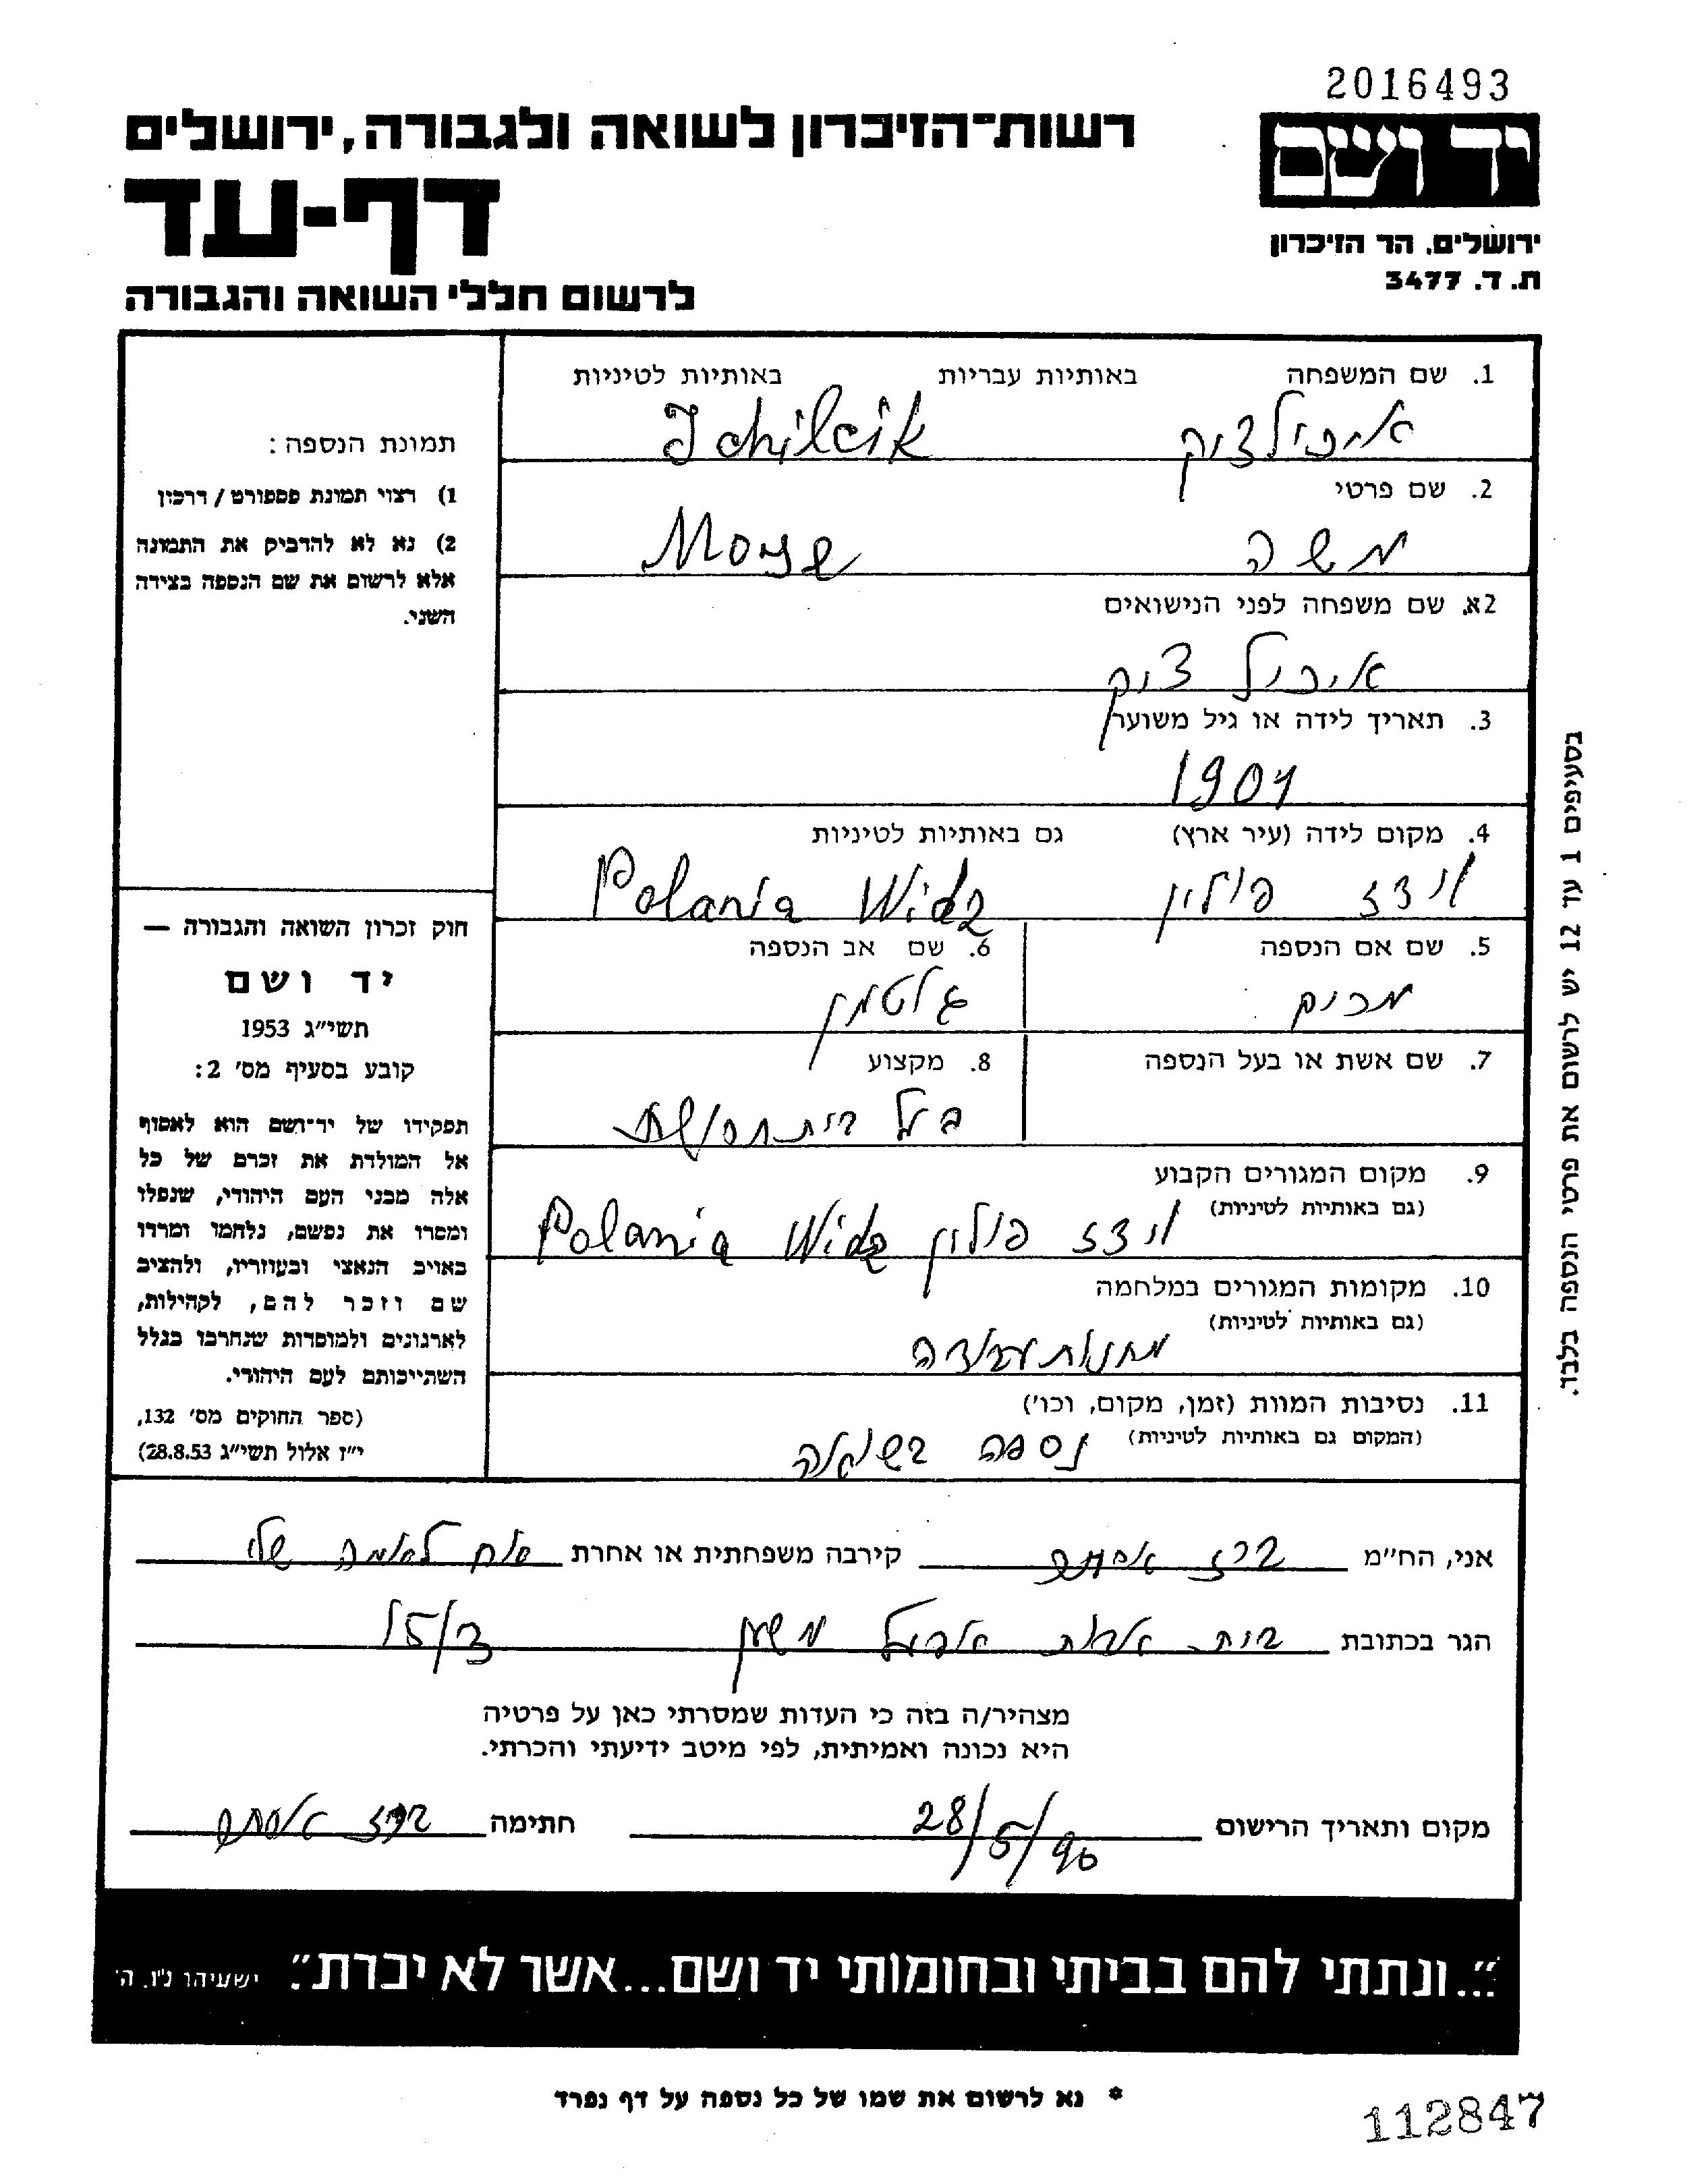 2016493
יד ושם
רשות־הזיכרון לשואה ולגבורה, ירושלים
דף-עד
ירושלים, הר הזיכרון
ת. ד. 3477
לרשום חללי השואה והגבורה
1. שם המשפחה באותיות עבריות באותיות לטיניות
איכילציק Ichilcik
2. שם פרטי
משה Moyse
2א. שם משפחה לפני הנישואים
איכיל ציק
3. תאריך לידה או גיל משוער
1904
4. מקום לידה (עיר ארץ) גם באותיות לטיניות
וידז פולין Polania Widz
5. שם אם הנספה
6. שם אב הנספה
זלטמן
7. שם אשת או בעל הנספה
8. מקצוע
בעל בית חרושת
9. מקום המגורים הקבוע
(גם באותיות לטיניות)
וידז פולין Polania Widz
10. מקומות המגורים במלחמה
(גם באותיות לטיניות)
מחנות עבודה
11. נסיבות המוות (זמן, מקום, וכו')
(המקום גם באותיות לטיניות)
נספה בשואה
תמונת הנספה:
1) רצוי תמונת פספורט / דרכון
2) נא לא להדביק את התמונה
אלא לרשום את שם הנספה בצידה
השני.
חוק זכרון השואה והגבורה —
יד ושם
תשי"ג 1953
קובע בסעיף מס' 2:
תפקידו של יד־ושם הוא לאסוף
אל המולדת את זכרם של כל
אלה מבני העם היהודי, שנפלו
ומסרו את נפשם, נלחמו ומרדו
באויב הנאצי ובעוזריו, ולהציב
שם וזכר להם, לקהילות,
לארגונים ולמוסדות שנחרבו בגלל
השתייכותם לעם היהודי.
(ספר החוקים מס' 132,
י"ז אלול תשי"ג 28.8.53)
בסעיפים 1 עד 12 יש לרשום את פרטי הנספה בלבד.
אני, הח"מ ברז אסתר קירבה משפחתית או אחרת אח לאמה שלי
הגר בכתובת בית אבות משען 15/3
מצהיר/ה בזה כי העדות שמסרתי כאן על פרטיה
היא נכונה ואמיתית, לפי מיטב ידיעתי והכרתי.
מקום ותאריך הרישום 28/5/90 חתימה ברז אסתר
"...ונתתי להם בביתי ובחומותי יד ושם...אשר לא יכרת". ישעיהו נ"ו, ה'
* נא לרשום את שמו של כל נספה על דף נפרד
112847